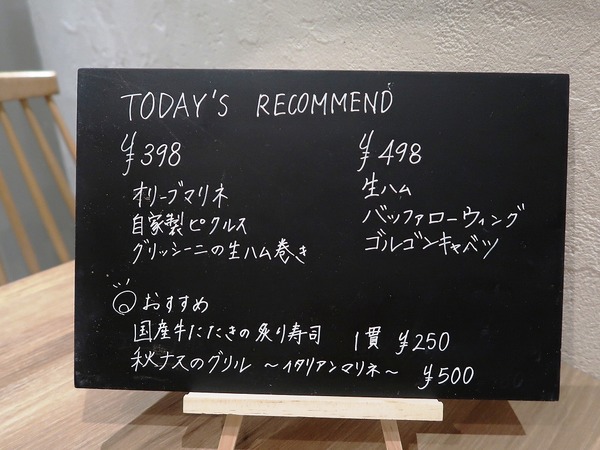 TODAY'S RECOMMEND
¥398
オリーブマリネ
自家製ピクルス
グリッシーニの生ハム巻き
¥498
生ハム
バッファローウィング
ゴルゴンキャベツ
おすすめ
国産牛にたきの炙り寿司 1貫 ¥250
秋ナスのグリル ～イタリアンマリネ～ ¥500